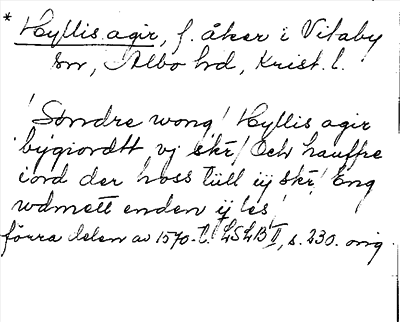 * Hyllis agir, f. åker i Vitaby
sn, Albo hd, Krist. l.
'Söndre wong! Hyllis agir
bygiordtt vj skr! Och hauffre
iord der hoss tüll iij skr! Eng
wdmett enden ij les'
förra delen av 1570-t. LSLB II, s. 230. orig.